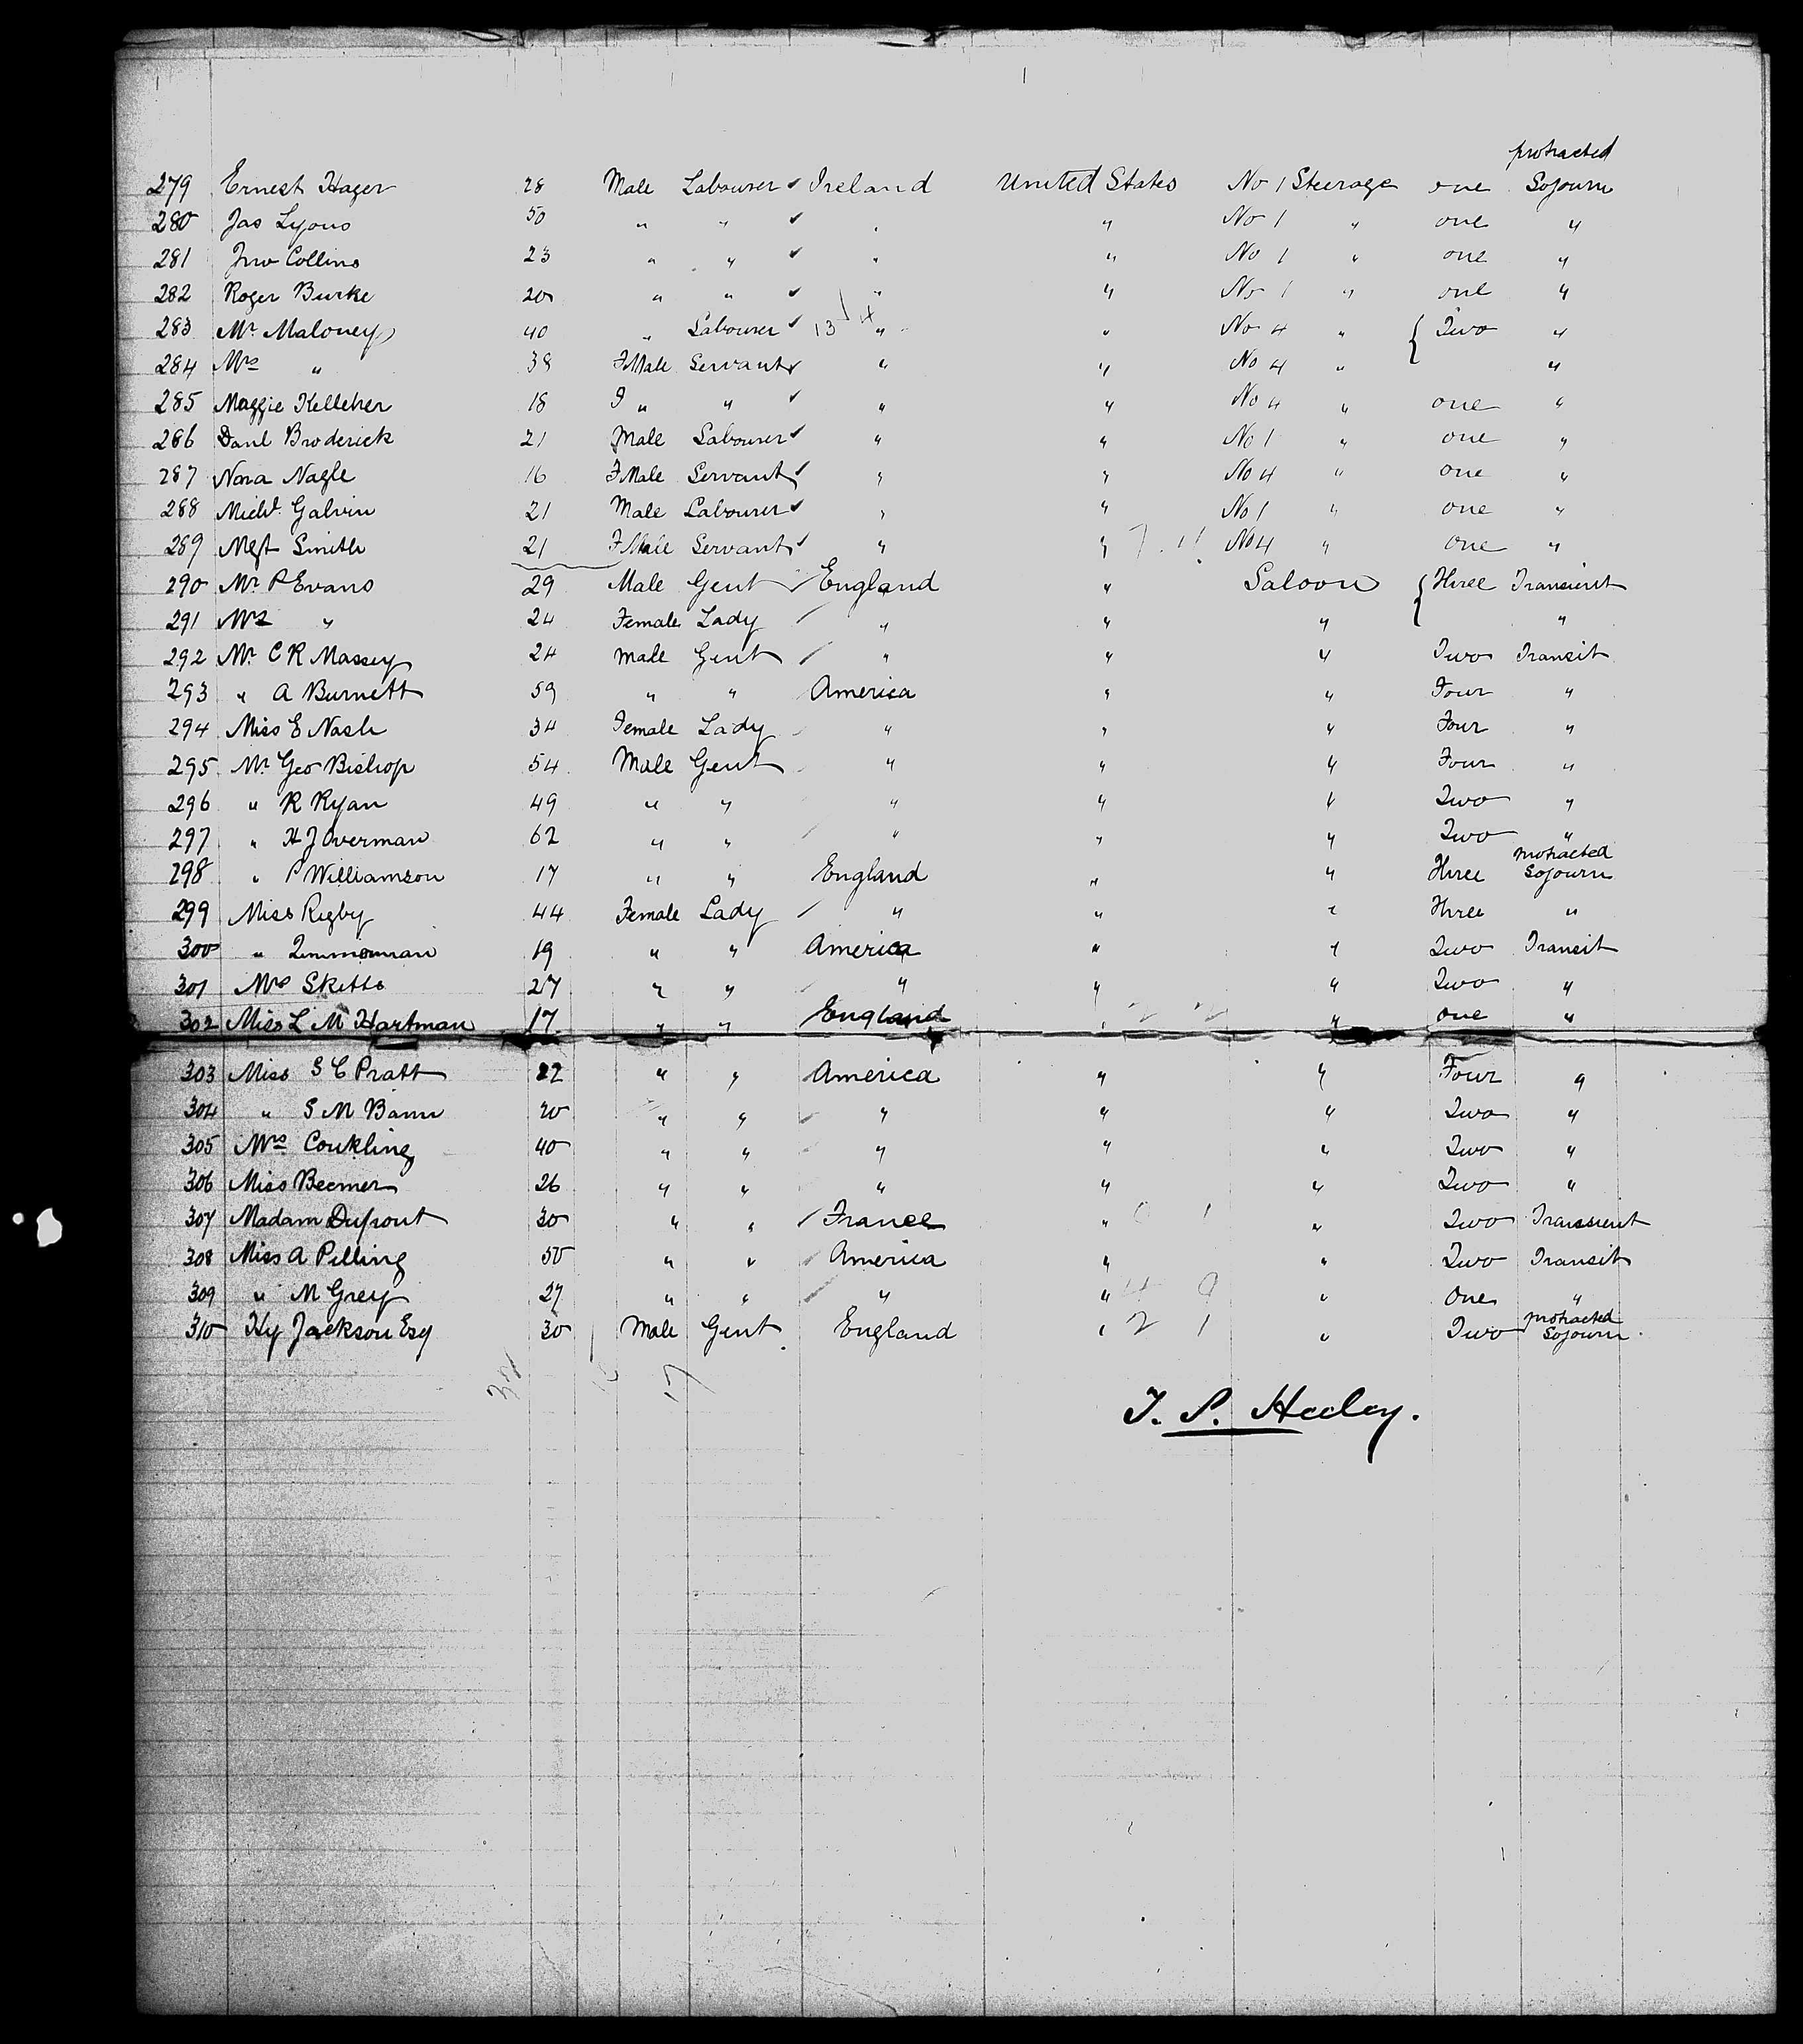 protracted
279 Ernest Hager 28 Male Labourer ✓ Ireland United States No 1 Steerage one Sojourn
280 Jas Lyons 50 " " ✓ " " No 1 " one "
281 Jno Collins 23 " " ✓ " " No 1 " one "
282 Roger Burke 20 " " ✓ " " No 1 " one "
283 Mr Maloney 40 " Labourer ✓ 13 4 " " No 4 " { Two "
284 Mrs " 38 FMale Servant ✓ " " No 4 " "
285 Maggie Kelleher 18 F " " ✓ " " No 4 " one "
286 Danl Broderick 21 Male Labourer ✓ " " No 1 " one "
287 Nora Nagle 16 FMale Servant ✓ " " No 4 " one "
288 Michl Galvin 21 Male Labourer ✓ " " No 1 " one "
289 Mgt Smith 21 FMale Servant ✓ " " 7. 11 No 4 " one "
290 Mr P Evans 29 Male Gent / England " Saloon { Three Transient
291 Mrs " 24 Female Lady / " " " "
292 Mr C R Massey 24 male Gent / " " " Two Transit
293 " A Burnett 59 " " America " " Four "
294 Miss E Nash 34 Female Lady " " " Four "
295 Mr Geo Bishop 54 Male Gent " " " Four "
296 " R Ryan 49 " " " " " Two "
297 " H J Overman 62 " " " " " Two "
protracted
298 " P Williamson 17 " " England " " Three Sojourn
299 Miss Rigby 44 Female Lady / " " " Three "
300 " Zimmerman 19 " " America " " Two Transit
301 Mrs Sketts 27 " " " " " Two "
302 Miss L M Hartman 17 " " England " " one "
303 Miss S C Pratt 22 " " America " " Four "
304 " S M Bann 20 " " " " " Two "
305 Mrs Conkling 40 " " " " " Two "
306 Miss Beemer 26 " " " " " Two "
307 Madam Dupont 30 " " / France " " Two Transient
308 Miss A Pelling 50 " " America " " Two Transit
309 " M Grey 27 " " " " 4 9 " One "
protracted
310 Hy Jackson Esq 30 Male Gent England " 2 1 " Two Sojourn
17
T. P. Heeley.